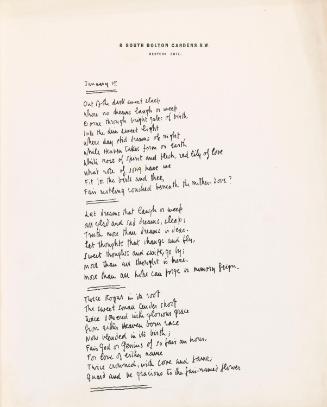 8 SOUTH BOLTON GARDENS S.W.
January 1st
Out of the dark sweet sleep
Where no dreams laugh or weep
Borne through bright gates of birth
Into the dim sweet light
Where day still dreams of night
While heaven takes form on earth,
White rose of spirit and flesh, red lily of love
What note of song have we
Fit for the birds and thee,
Fair nestling couched beneath the mother-dove?
Let dreams that laugh or weep
All glad and sad dreams, sleep;
Truth more than dreams is dear.
Let thoughts that change and fly,
Sweet thoughts and swift, go by;
More than all thought is here.
More than all hope can forge or memory feign
Twice Royal in its root
The sweet small shoot
Twice with glorious grace
From either Heaven born race
Now blended in its birth;
Fair God or Genius of so fair an hour,
For love of either name
Twice crowned, with love and fame,
Guard and be gracious to the fair-named flower